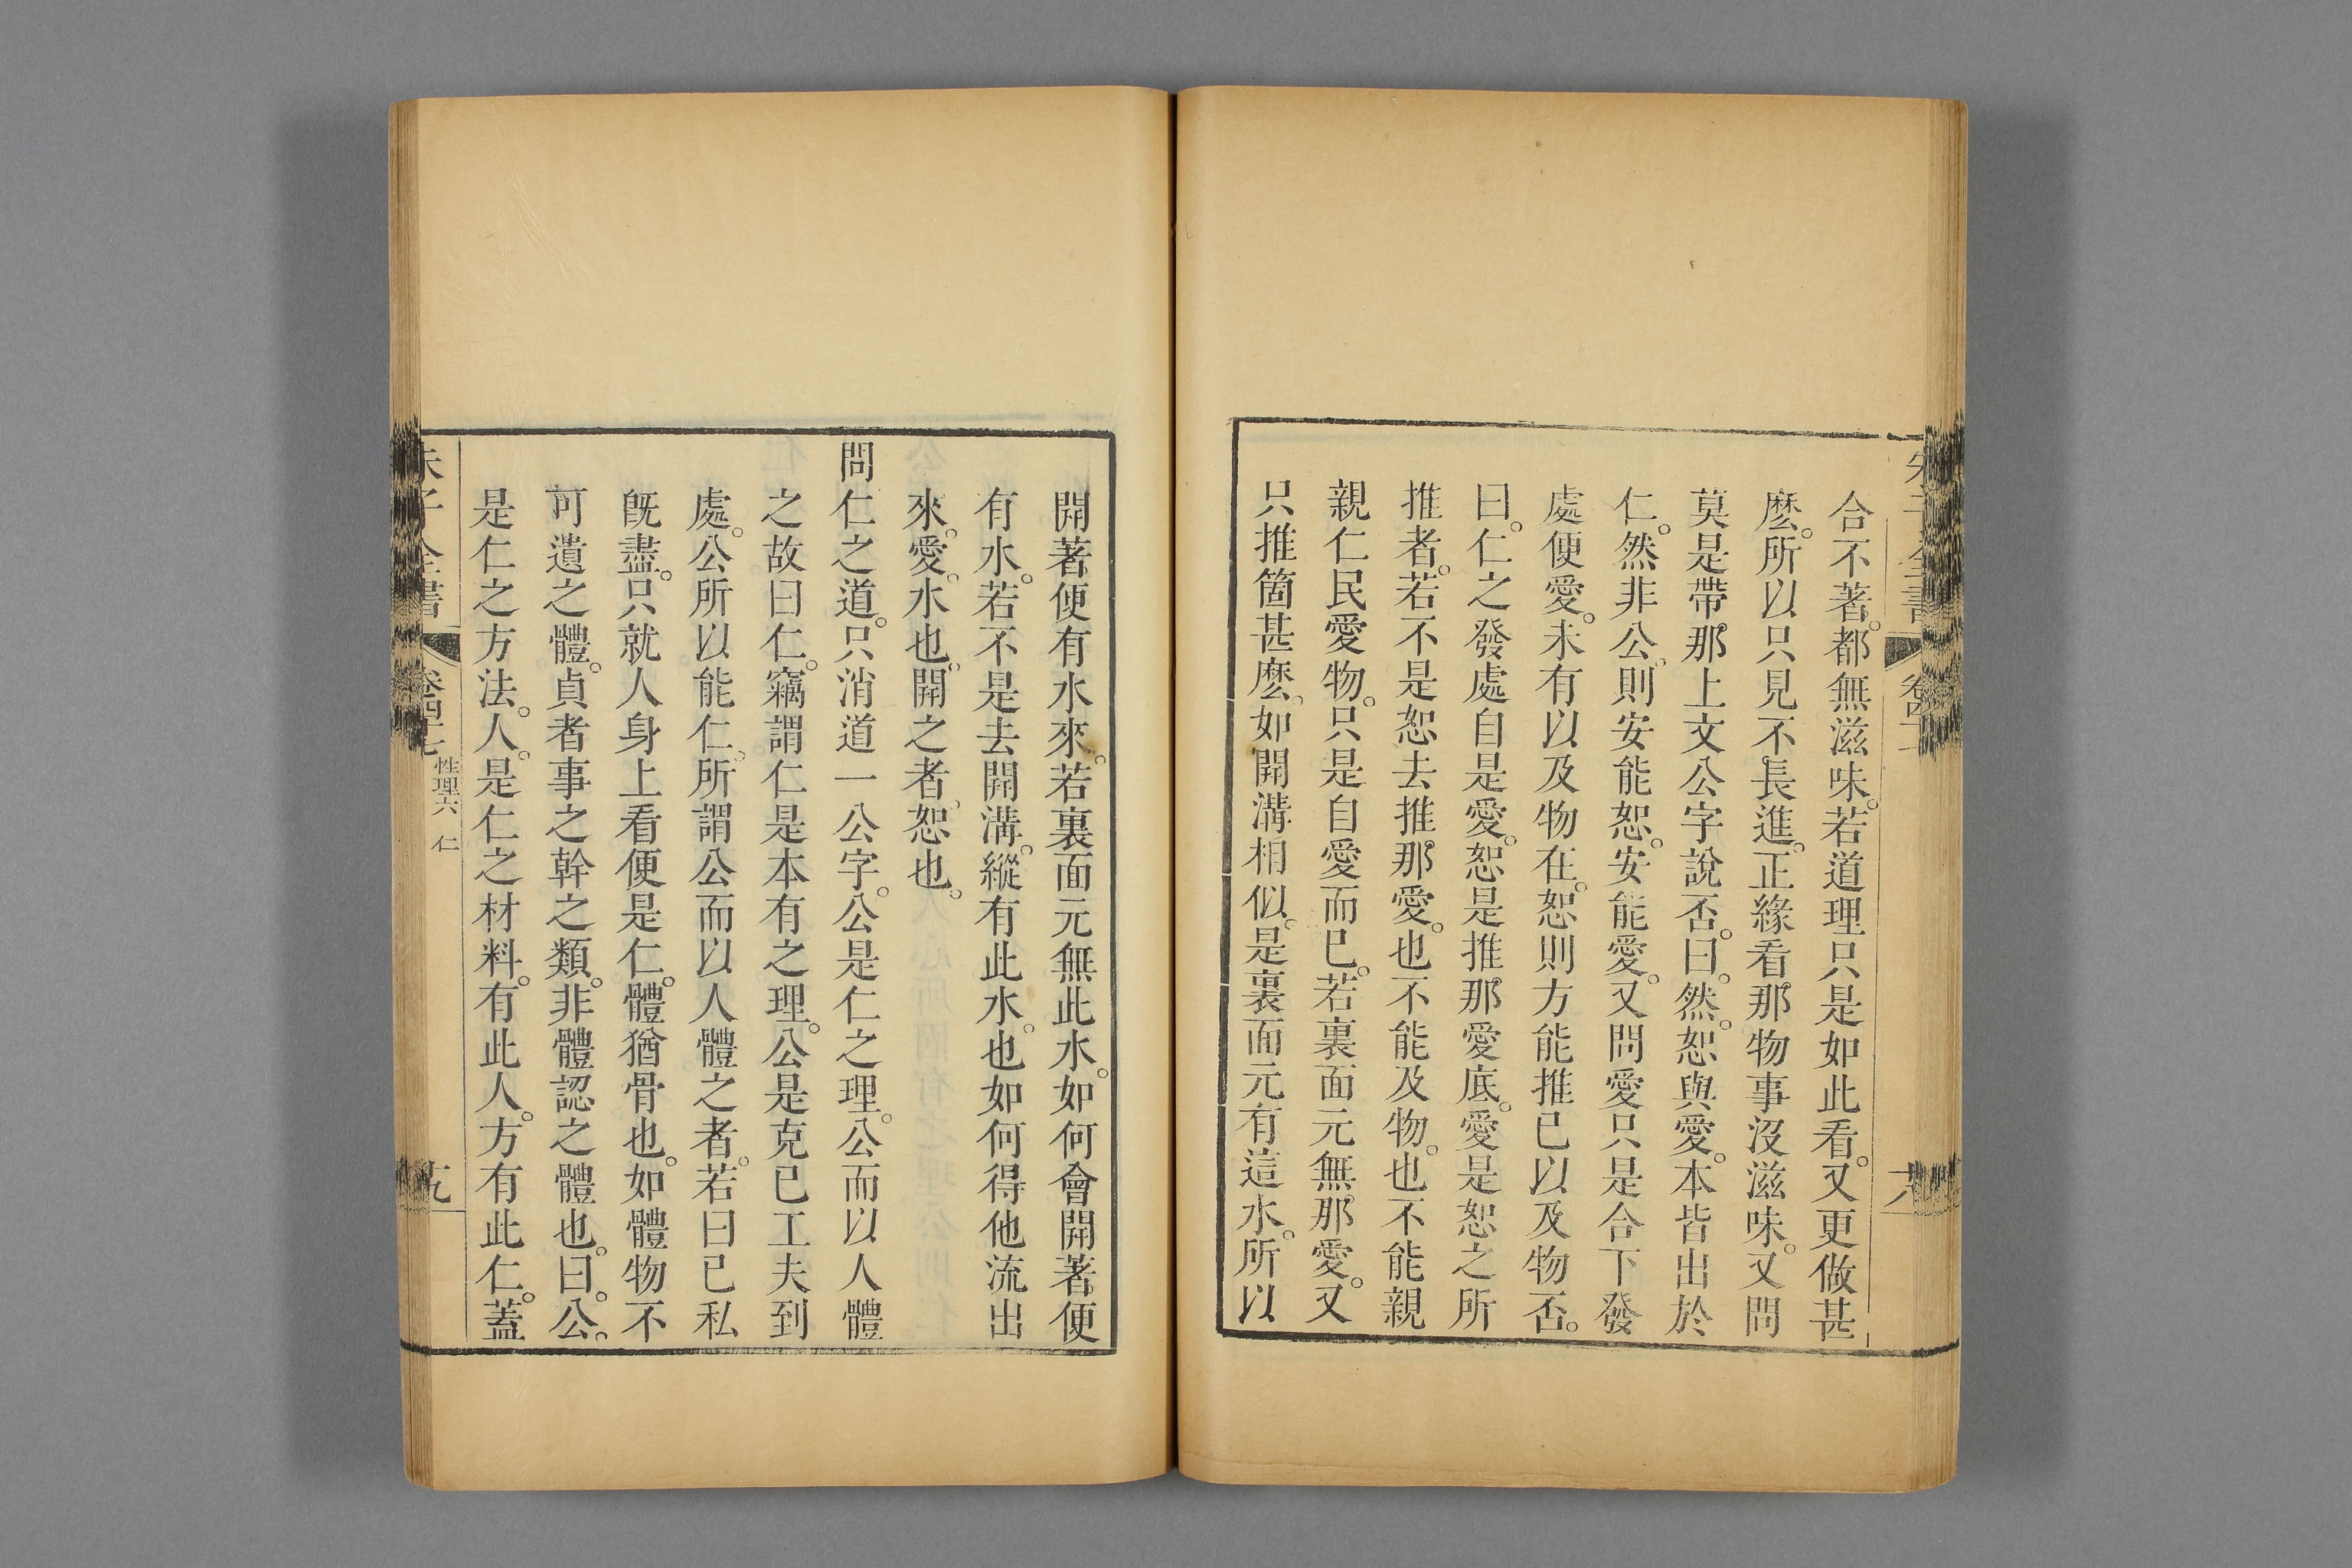 合不著。都無滋味。若道理只是如此看。又更做甚
麽。所以只見不長進。正緣看那物事沒滋味。又問
莫是帶那上文公字說否。曰。然。恕與愛。本皆出於
仁。然非公。則安能恕。安能愛。又問愛只是合下發
處便愛。未有以及物在。恕則方能推己以及物否。
曰。仁之發處自是愛。恕是推那愛底。愛是恕之所
推者。若不是恕去推那愛。也不能及物。也不能親
親仁民愛物。只是自愛而已。若裏面元無那愛。又
只推箇甚麽。如開溝相似。是裏面元有這水。所以
開著便有水來。若裏面元無此水。如何會開著便
有水。若不是去開溝。縱有此水。也如何得他流出
來。愛。水也。開之者。恕也。
問仁之道。只消道一公字。公是仁之理。公而以人體
之故曰仁。竊謂仁是本有之理。公是克己工夫到
處。公所以能仁。所謂公而以人體之者。若曰己私
既盡。只就人身上看便是仁。體猶骨也。如體物不
可遺之體。貞者事之幹之類。非體認之體也。曰。公。
是仁之方法。人。是仁之材料。有此人。方有此仁。蓋
朱子全書 卷四十七 性理六 仁 十九